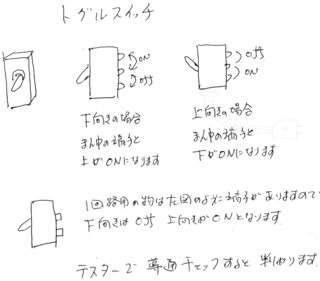 トグルスイッチ
ON
OFF
OFF
ON
下向きの場合
まん中の端子と
上がONになります
上向きの場合
まん中の端子と
下がONになります
1回路用の物は左図のように端子がありますので
下向きはOFF 上向きがONとなります
テスターで導通チェックすると判ります